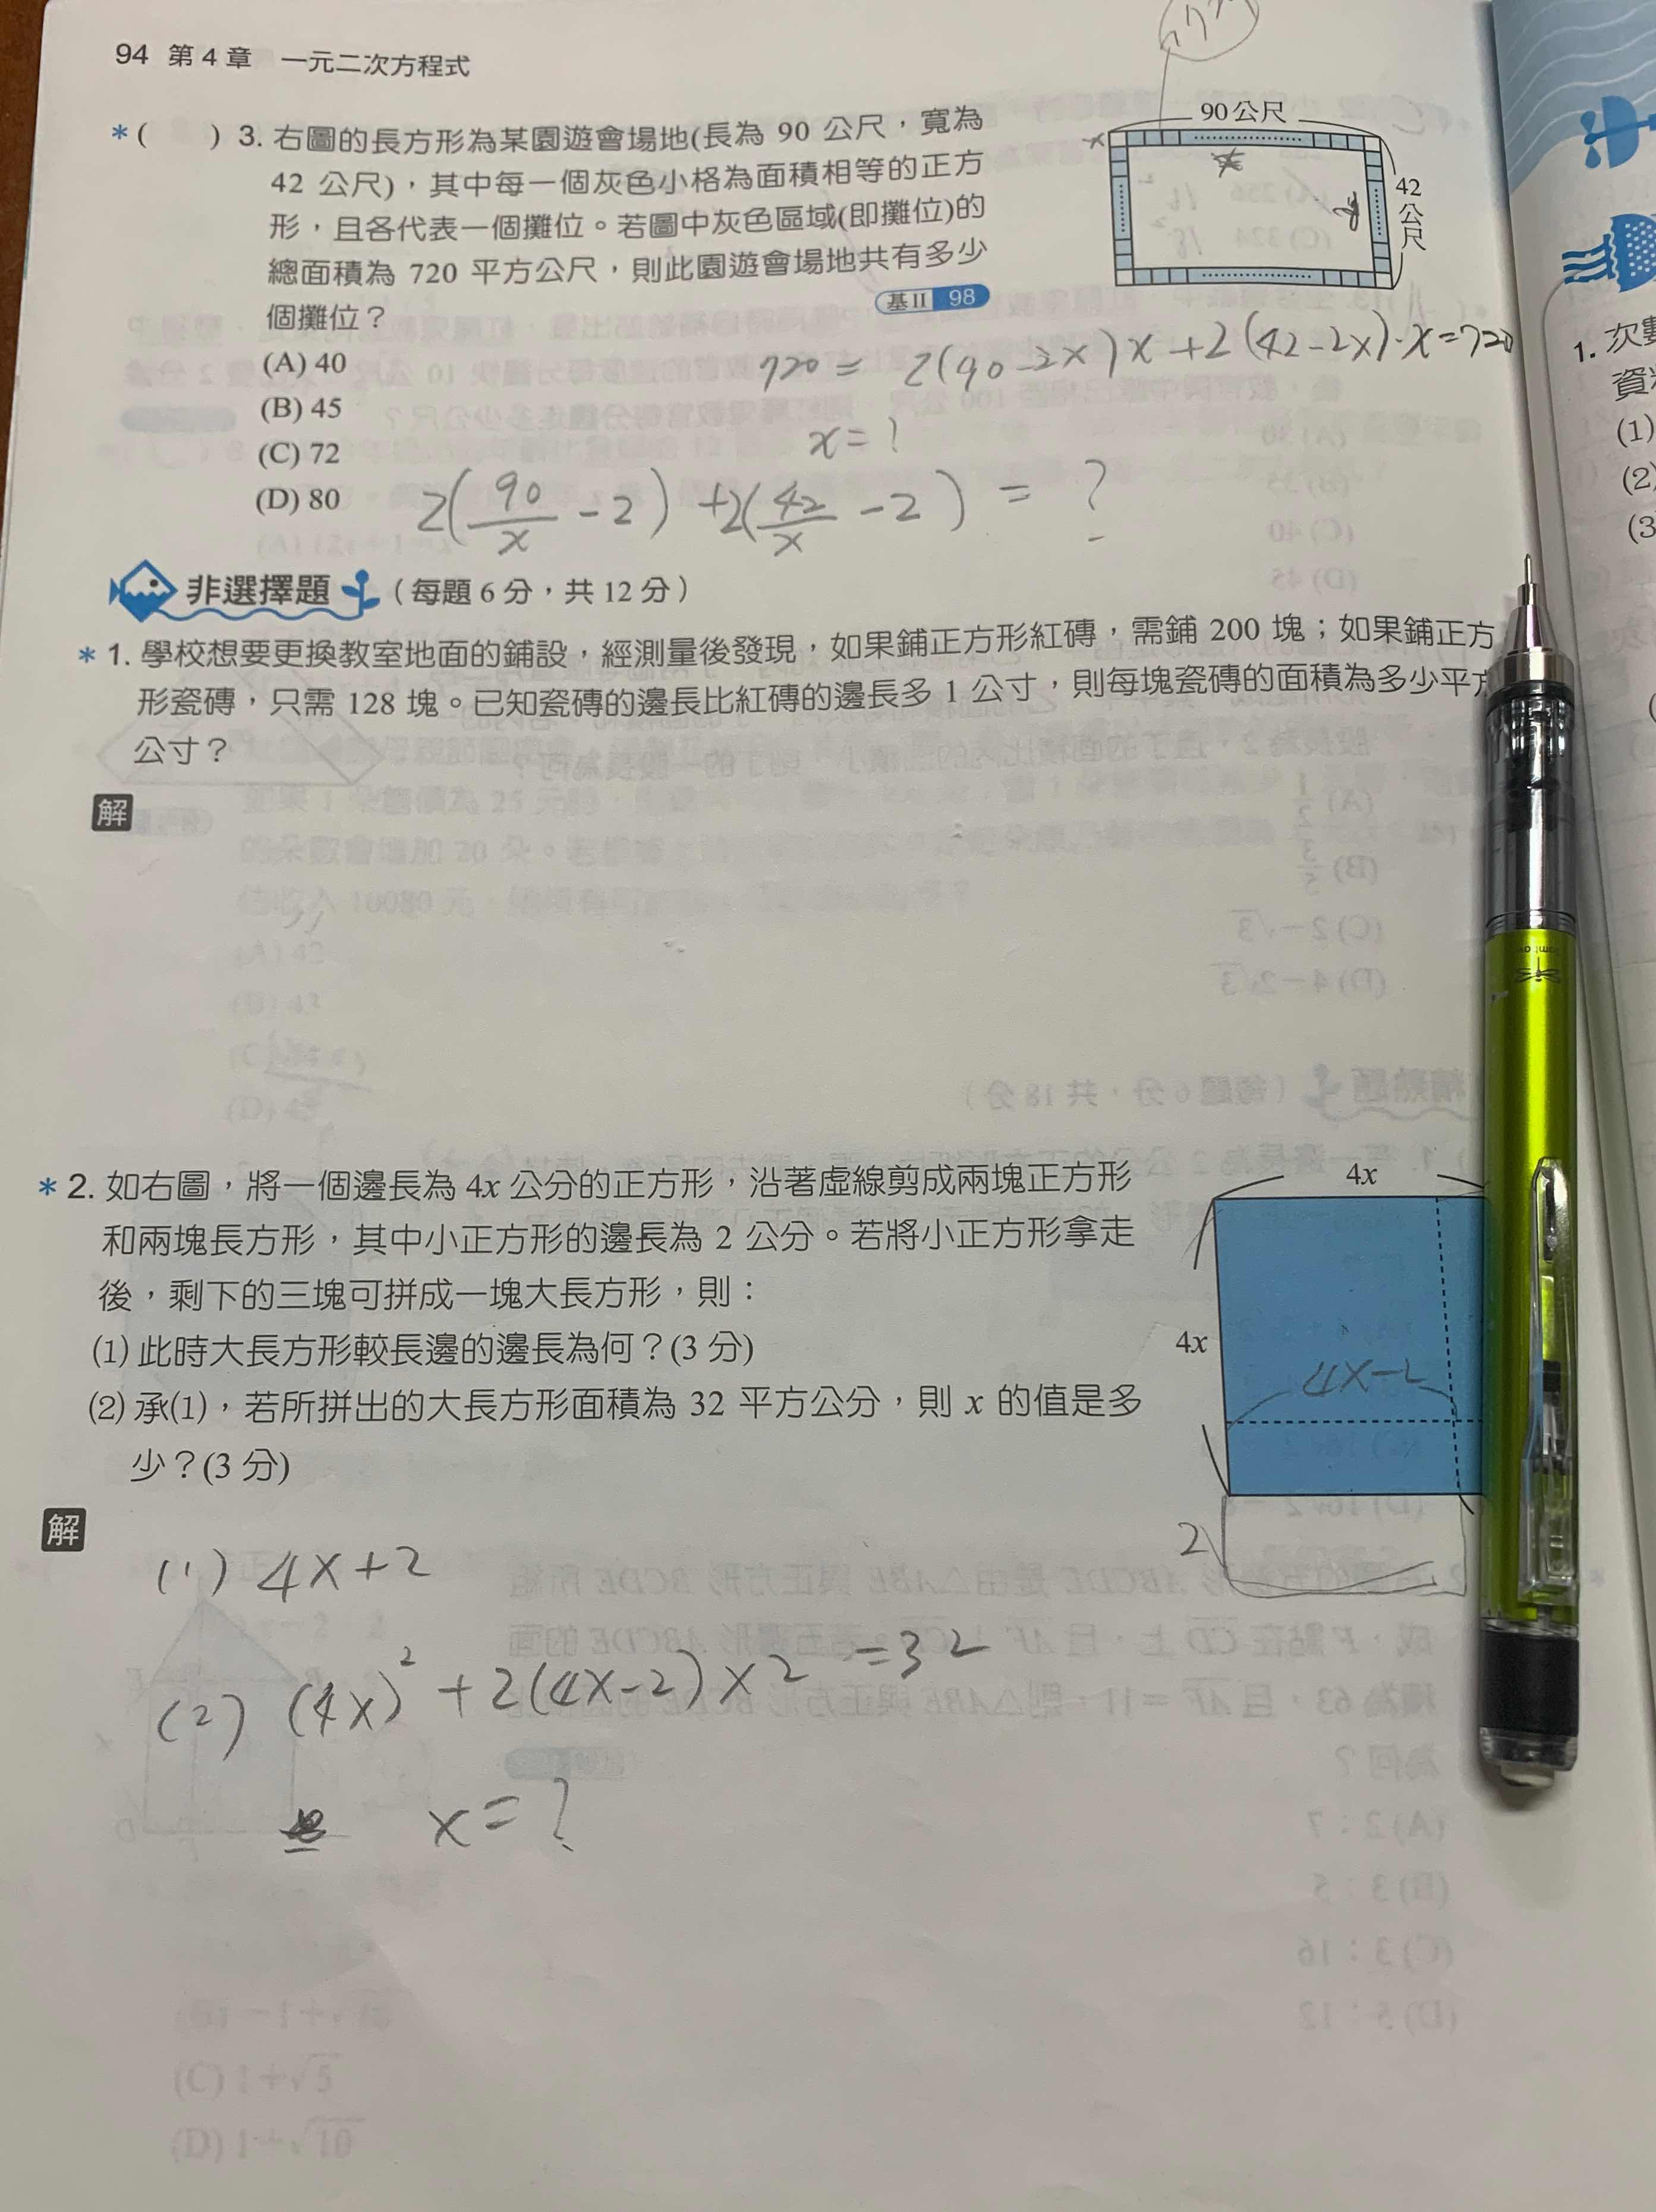 94 第4章 一元二次方程式
*( ) 3. 右圖的長方形為某園遊會場地(長為 90 公尺，寬為
42 公尺)，其中每一個灰色小格為面積相等的正方
形，且各代表一個攤位。若圖中灰色區域(即攤位)的
總面積為 720 平方公尺，則此園遊會場地共有多少
個攤位？
基II 98
(A) 40
(B) 45
(C) 72
(D) 80
90公尺
42公尺
x
720 = 2(90-2x)x+2(42-2x)·x=720
x=?
2(90/x -2)+2(42/x -2)= ?
非選擇題 （每題6分，共12分）
*1. 學校想要更換教室地面的鋪設，經測量後發現，如果鋪正方形紅磚，需鋪 200 塊；如果鋪正方
形瓷磚，只需 128 塊。已知瓷磚的邊長比紅磚的邊長多 1 公寸，則每塊瓷磚的面積為多少平方
公寸？
解
*2. 如右圖，將一個邊長為 4x 公分的正方形，沿著虛線剪成兩塊正方形
和兩塊長方形，其中小正方形的邊長為 2 公分。若將小正方形拿走
後，剩下的三塊可拼成一塊大長方形，則：
(1) 此時大長方形較長邊的邊長為何？(3 分)
(2) 承(1)，若所拼出的大長方形面積為 32 平方公分，則 x 的值是多
少？(3 分)
4x
4x
4x-2
2
解
(1) 4x+2
(2) (4x)²+2(4x-2)x2 =32
x=?
1. 次
(1)
(2)
(3